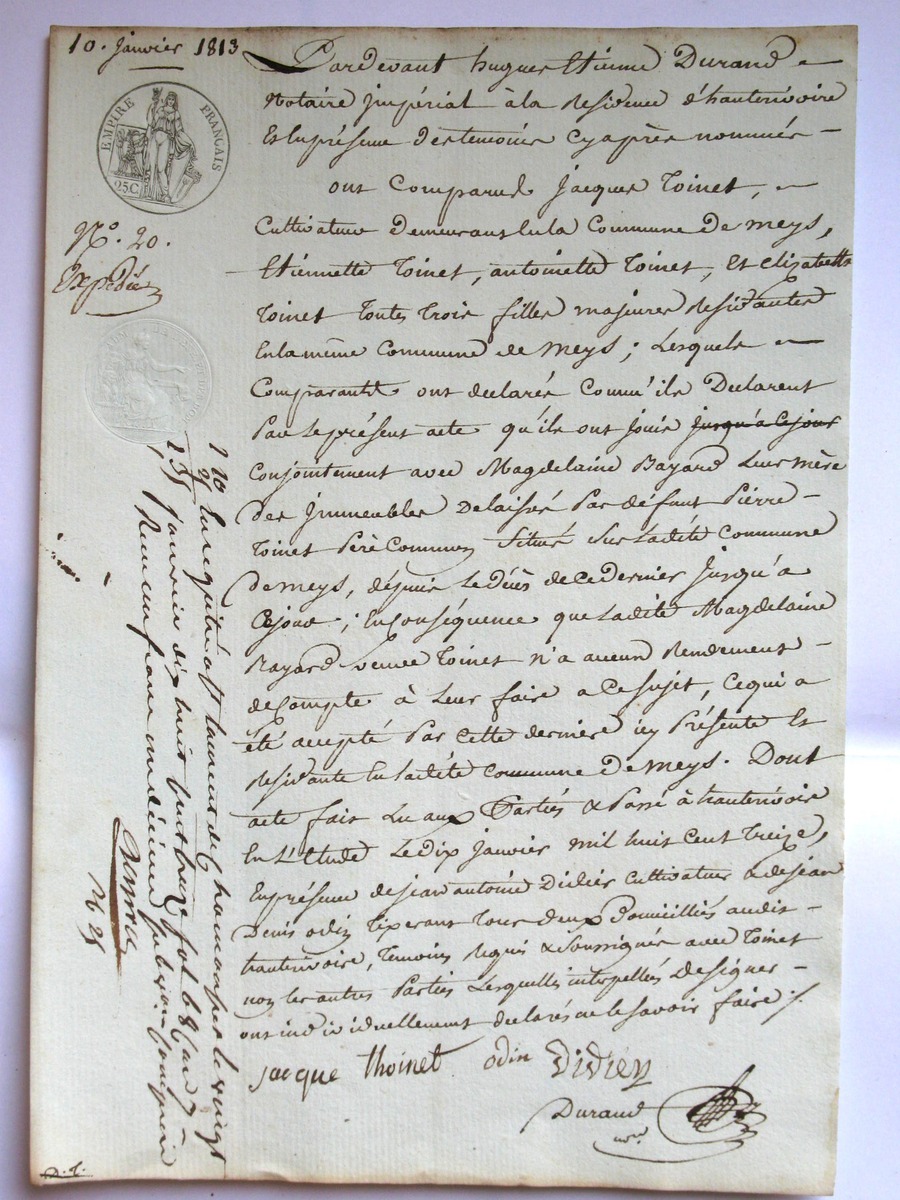 10. janvier 1813
EMPIRE FRANÇAIS
25C.
N.º 20.
Expédiée
Pardevant hugues Etienne Durand
Notaire jmpérial à la Residence d'hauterivoire
Et En présence des temoins Cyaprès nommés
ont Comparus Jacques Toinet,
Cultivateur Demeurant En la Commune De Meys,
Etiennette Toinet, antoinette Toinet, Et Elizabeth
Toinet toutes trois filles majeures Residantes
En la même Commune de Meys ; Lesquels
Comparants ont déclarés Comm'ils Déclarent
Par Le présent acte qu'ils ont jouis jusqu'a ce jour
Conjointement avec Magdelaine Bayard Leur mère
Des jmmeubles Delaissés Par défunt Pierre
Toinet Père Commun Situés Sur Ladite Commune
De meys, dépuis Le décès de Ce Dernier jusqu'à
Ce jour ; En Conséquence que Ladite Magdelaine
Bayard veuve Toinet n'a aucun Rendement
de Compte à Leur faire a Ce Sujet, Ce qui a
été accepté Par Cette dernière icy Présente Et
Residante En Ladite Commune De meys. Dont
acte fait Lu aux Parties & Passé à hauterivoire
En L'Etude Le Dix janvier mil huit Cent Treize,
En présence de jean antoine Didier Cultivateur & de jean
Denis odin Tixerant Tous deux Domiciliés audit
hauterivoire, Temoins Requis & Soussignés avec Toinet
non les autres Parties Lesquelles interpellés De signer
ont individuellement déclarés ne le savoir faire ./.
jacque thoinet odin Didier
Durand
nore
Enregistré à St Laurent de Chamousset le vingt
janvier dix huit cent treize fol. 68
Reçu un franc un décime Subvention Comprise
D. T.